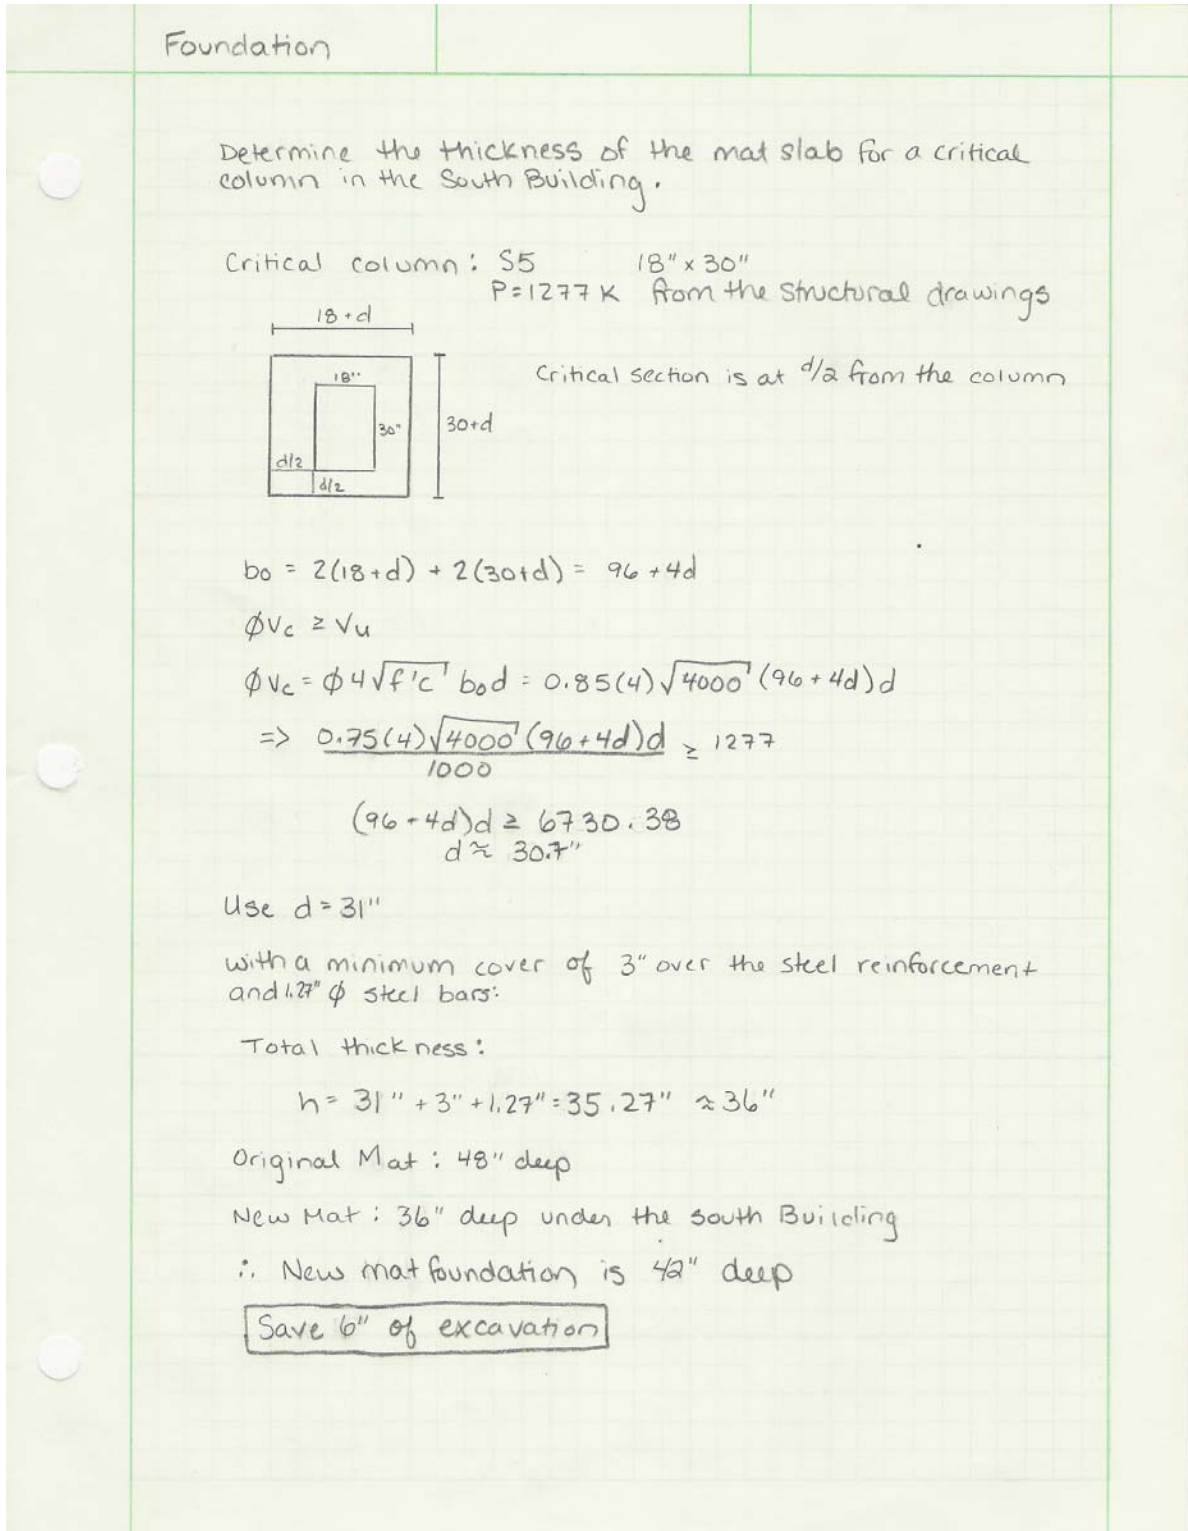 Foundation
Determine the thickness of the mat slab for a critical
column in the South Building.
Critical column: S5 18" x 30"
P=1277 K from the structural drawings
18+d
18"
30"
d/2
d/2
30+d
Critical section is at d/2 from the column
bo = 2(18+d) + 2(30+d) = 96 +4d
ϕVc ≥ Vu
ϕVc = ϕ4√f'c bod = 0.85(4)√4000 (96+4d)d
=> 0.75(4)√4000 (96+4d)d ≥ 1277
1000
(96+4d)d ≥ 6730.38
d ≈ 30.7"
Use d=31"
with a minimum cover of 3" over the steel reinforcement
and 1.27" ϕ steel bars:
Total thickness:
h= 31" + 3" + 1.27" = 35.27" ≈ 36"
Original Mat: 48" deep
New Mat: 36" deep under the South Building
∴ New mat foundation is 42" deep
Save 6" of excavation